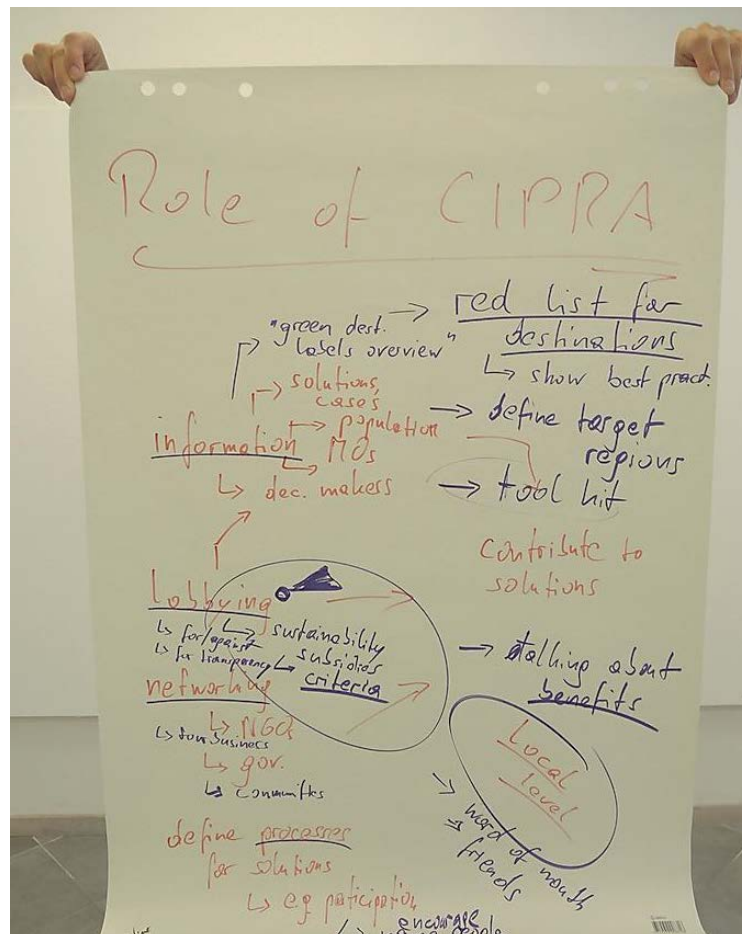 Role of CIPRA
"green dest.
labels overview"
→ red list for
destinations
↳ show best pract.
→ solutions,
cases
→ population
→ define target
regions
information
↳ MOs
↳ dec. makers
→ tool kit
contribute to
solutions
Lobbying
↳ for/against
↳ for transparency
↳ sustainability
↳ subsidies
criteria
→ talking about
benefits
networking
↳ NGOs
↳ tour business
↳ gov.
↳ communities
Local
level
→ word of mouth
→ friends
define processes
for solutions
↳ e.g. participation
encourage
people